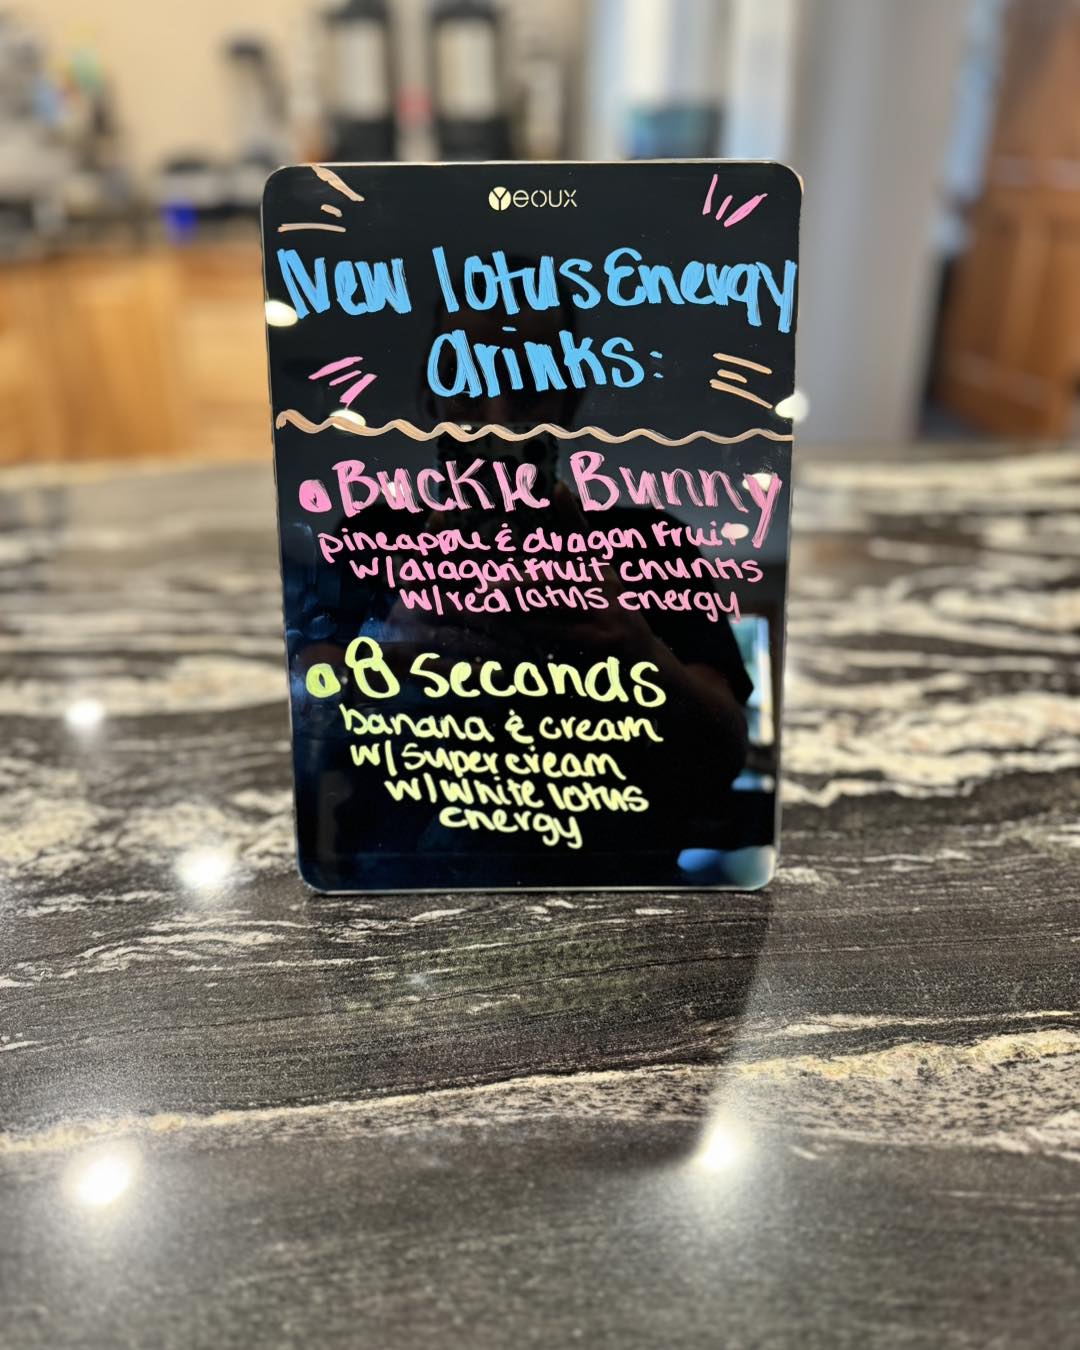 Yeoux
New lotus Energy
drinks:
Buckle Bunny
pineapple & dragon fruit
w/dragonfruit chunks
w/red lotus energy
8 seconds
banana & cream
w/super cream
w/white lotus
energy